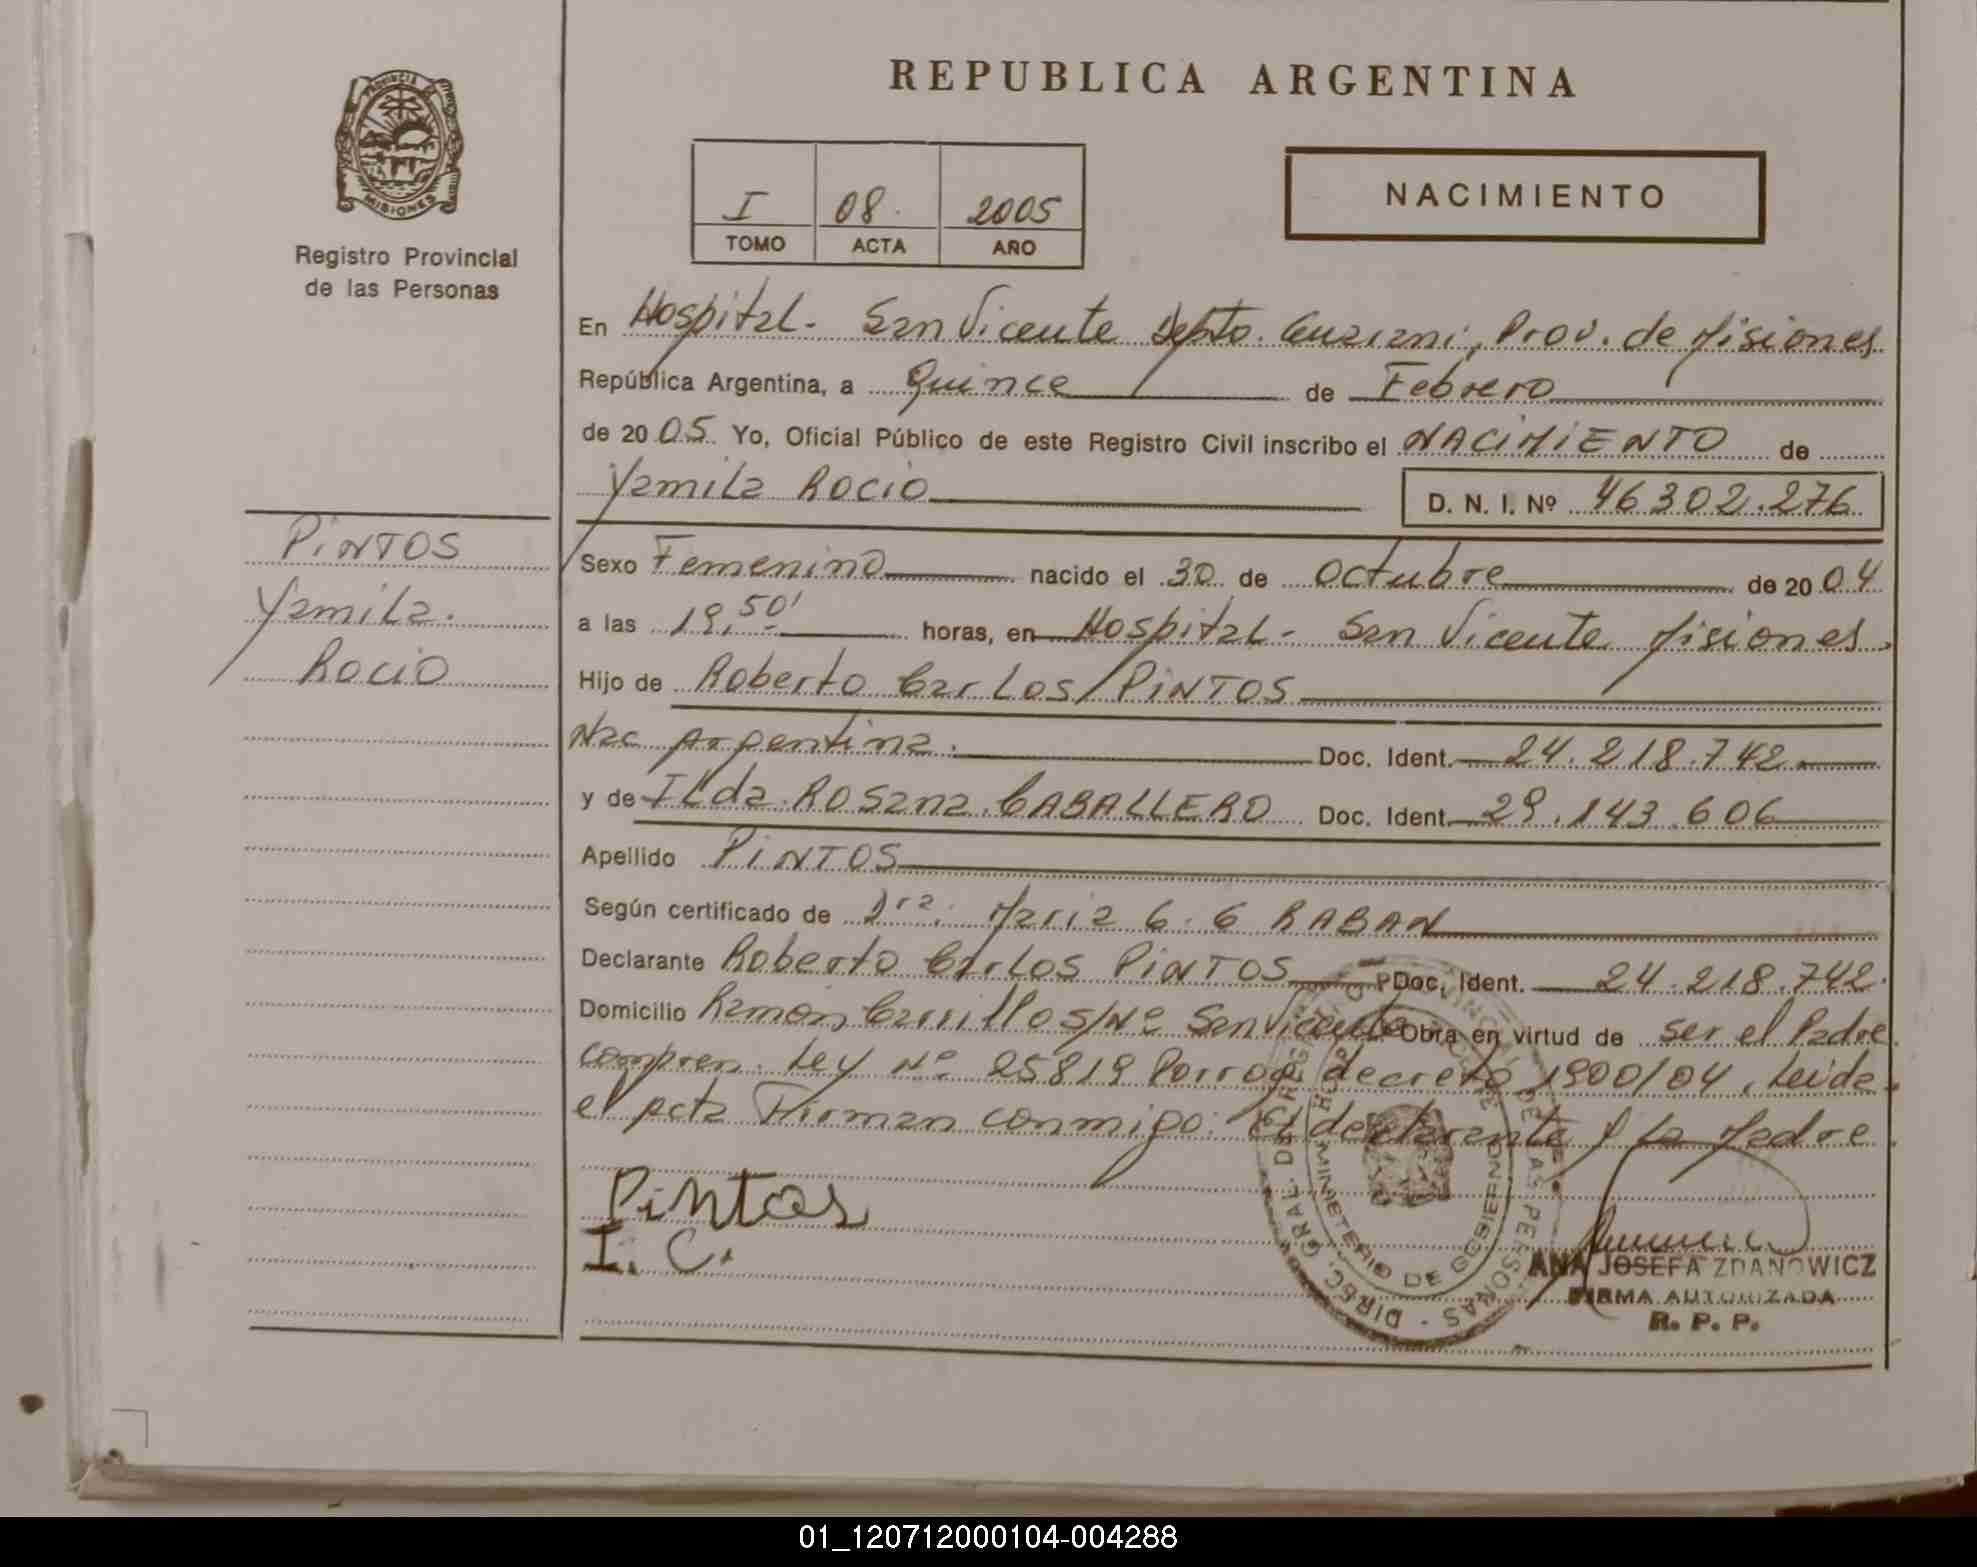 PROVINCIA DE
MISIONES
Registro Provincial
de las Personas
REPUBLICA ARGENTINA
I 08. 2005
TOMO ACTA AÑO
NACIMIENTO
En Hospital - San Vicente Depto. Guarani, Prov. de Misiones
República Argentina, a Quince de Febrero
de 2005 Yo, Oficial Público de este Registro Civil inscribo el NACIMIENTO de
Yamila Rocio D. N. I. Nº 46302.276
PINTOS
Yamila.
Rocio
Sexo Femenino nacido el 30 de Octubre de 2004
a las 19,50' horas, en Hospital - San Vicente Misiones.
Hijo de Roberto Carlos PINTOS
Nac Argentina. Doc. Ident. 24.218.742.
y de Ilda Rosana CABALLERO Doc. Ident. 29.143.606
Apellido PINTOS
Según certificado de Dra. Maria G. G RABAN
Declarante Roberto Carlos PINTOS Doc. Ident. 24.218.742.
Domicilio Ramón Carrillo s/Nº San Vicente Obra en virtud de ser el Padre
compren. Ley Nº 25819 Porrog. decreto 1900/04. Leida
el acta Firman conmigo: El declarante y la Madre.
Pintos
I. C.
DIREC. GRAL. DEL REGISTRO PROVINCIAL DE LAS PERSONAS
MINISTERIO DE GOBIERNO
ANA JOSEFA ZDANOWICZ
FIRMA AUTORIZADA
R. P. P.
01_120712000104-004288